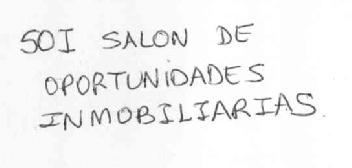 SOI SALON DE
OPORTUNIDADES
INMOBILIARIAS.